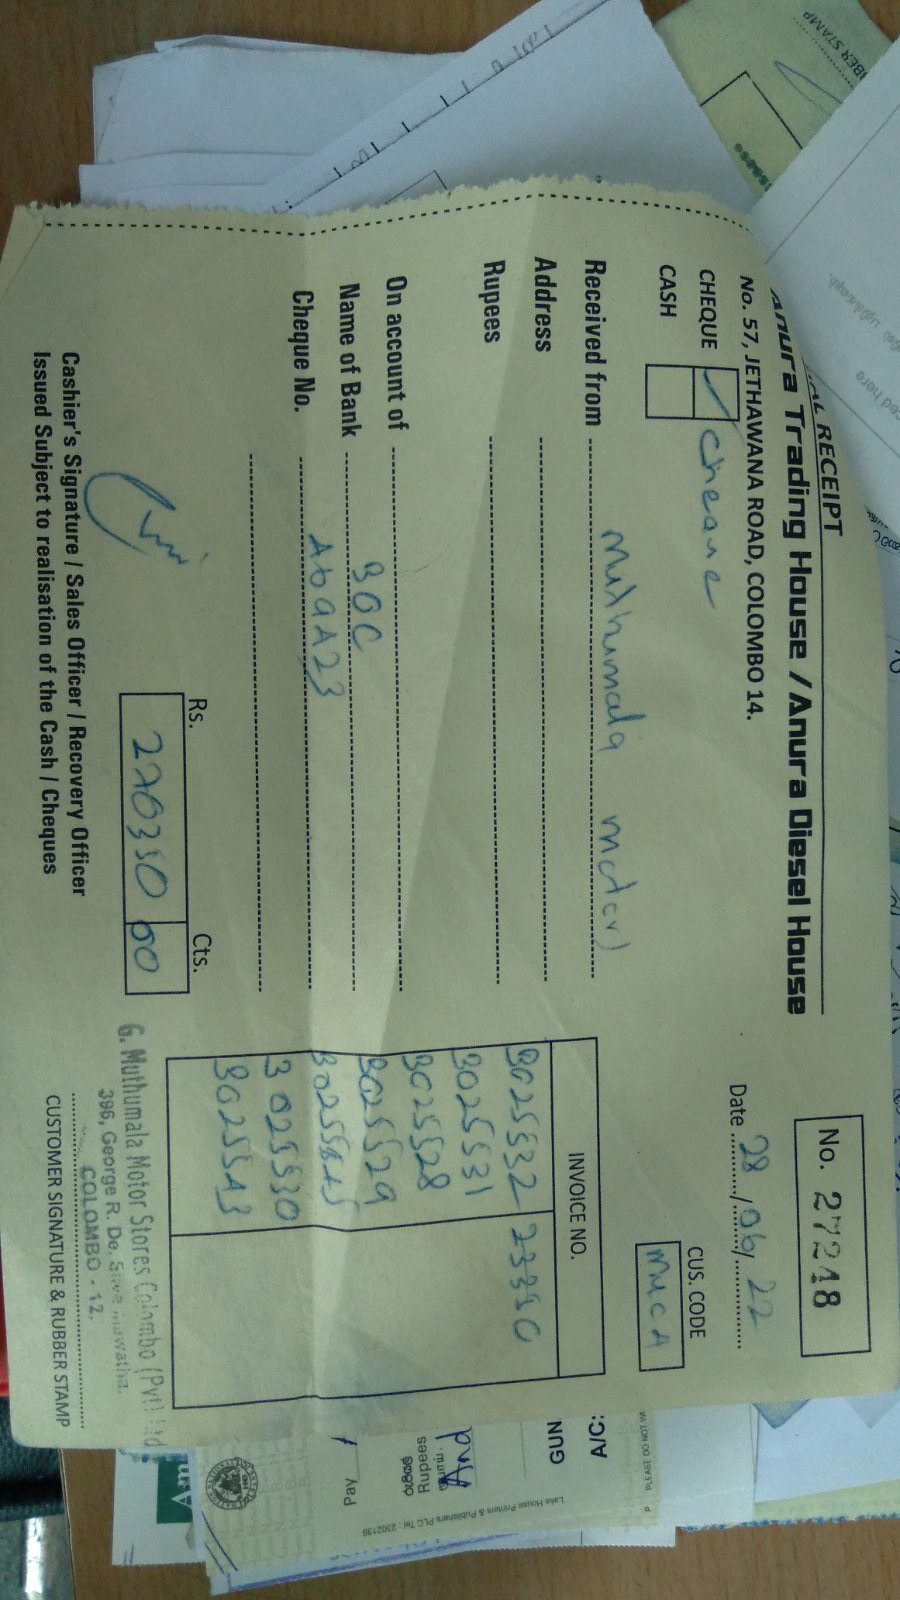 RECEIPT
Anura Trading House / Anura Diesel House
No. 57, JETHAWANA ROAD, COLOMBO 14.
No. 27248
Date 28/06/22
CHEQUE ✓ Cheaue
CASH
CUS. CODE
MUCA
Received from Muthumala motors
Address
Rupees
On account of
Name of Bank BOC
Cheque No.
INVOICE NO.
3025532 23350
3025531
3025528
3025529
3025530
Rs. Cts.
270350 00
G. Muthumala Motor Stores Colombo (Pvt) Ltd
396, George R. De.
COLOMBO - 12.
Cashier's Signature / Sales Officer / Recovery Officer
Issued Subject to realisation of the Cash / Cheques
CUSTOMER SIGNATURE & RUBBER STAMP
A/C:
GUN
Rupees
Pay
Lake House Printers & Publishers PLC Tel : 2302139